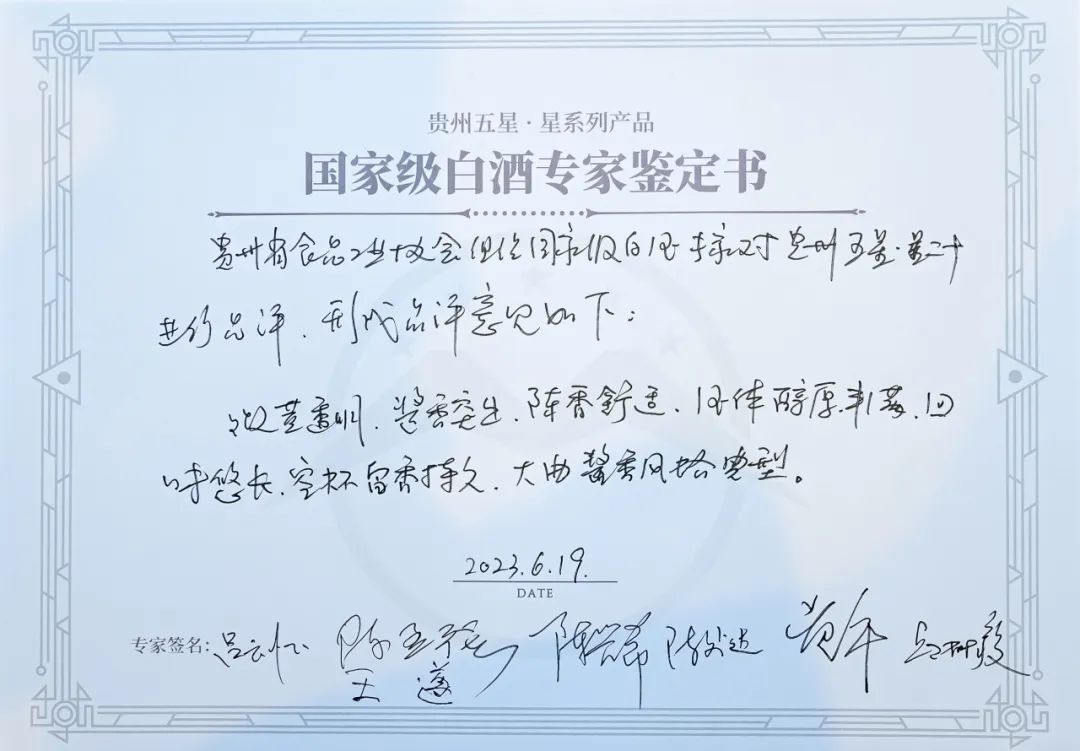 贵州五星·星系列产品
国家级白酒专家鉴定书
贵州省食品工业协会组织国家级白酒专家对贵州五星·星二十
进行品评，形成品评意见如下：
微黄透明，酱香突出，陈香舒适，酒体醇厚丰满，回
味悠长，空杯留香持久，大曲酱香风格典型。
2023.6.19.
DATE
专家签名: 吕云怀